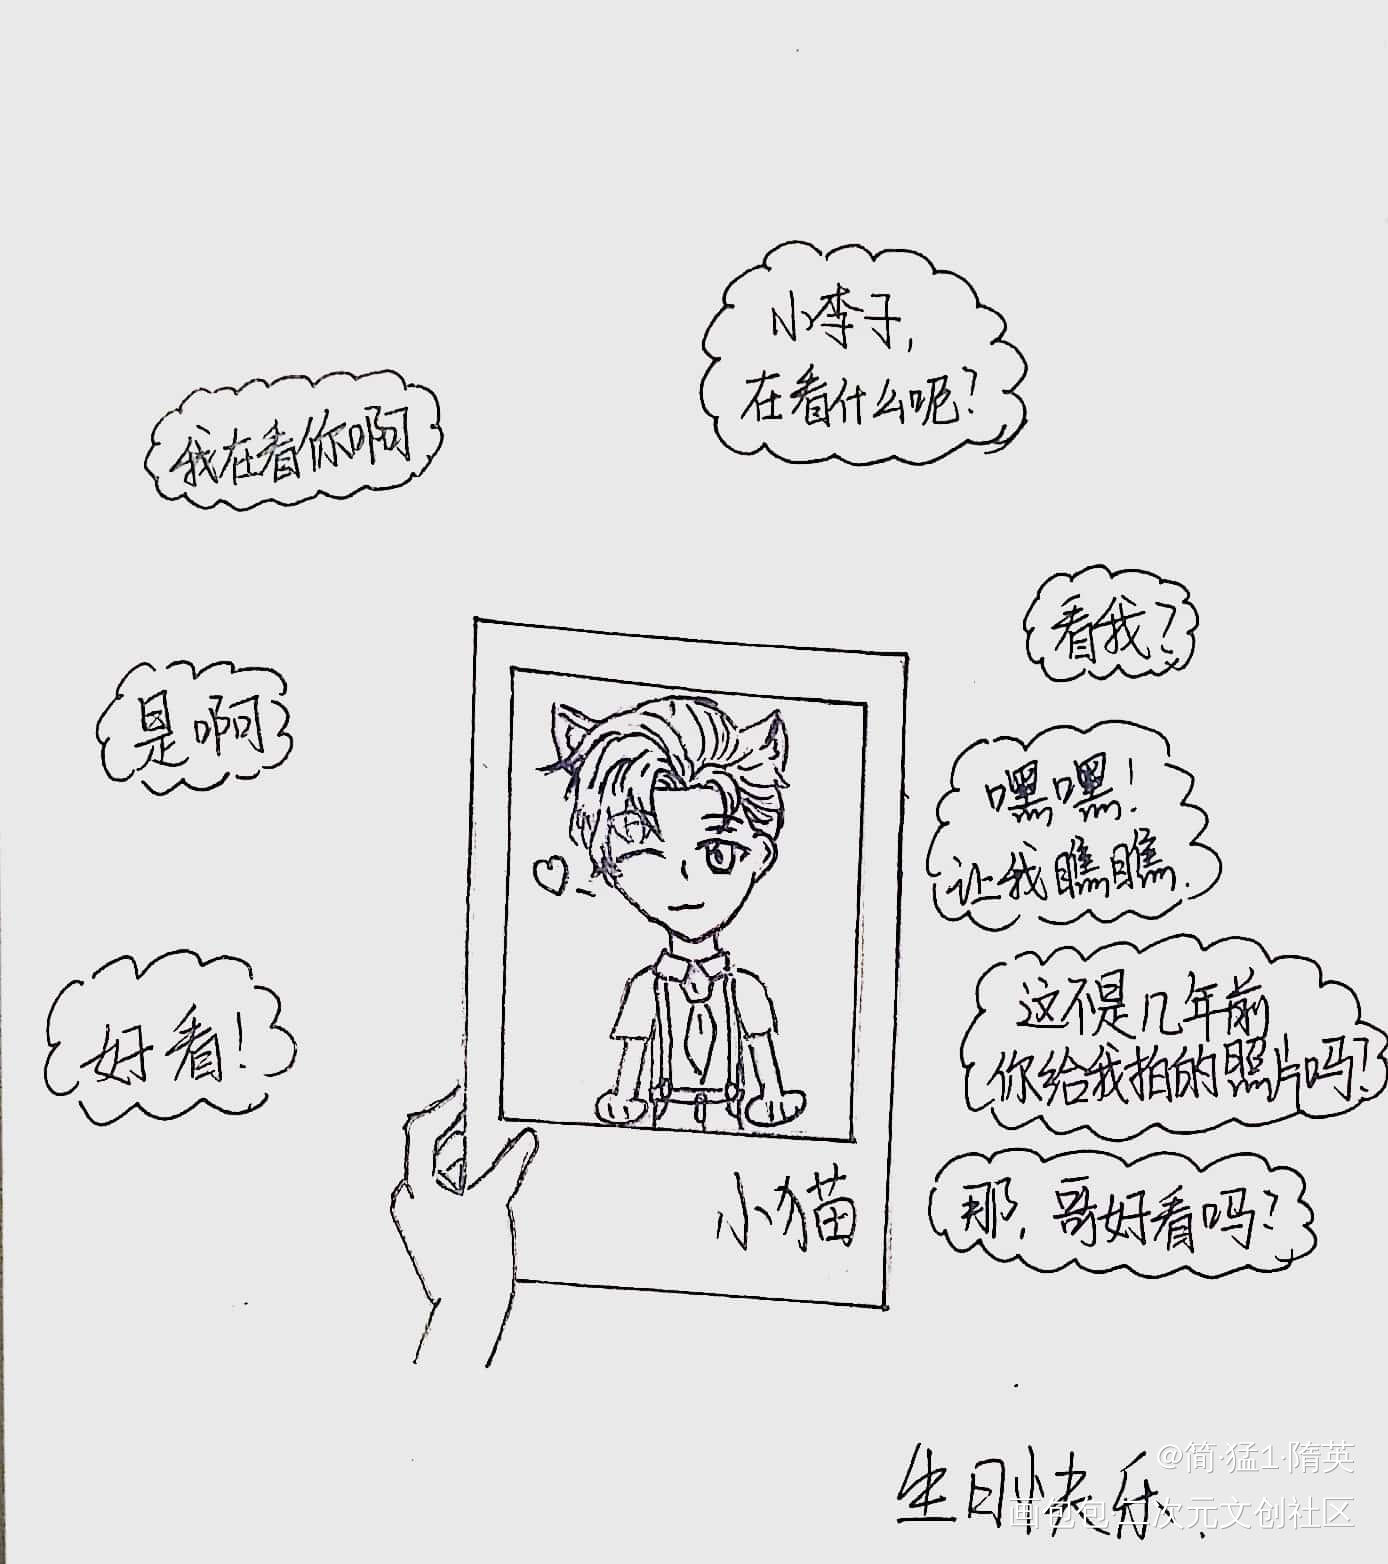 小李子，
在看什么呢？
我在看你啊
看我？
嘿嘿！
让我瞧瞧.
是啊
这不是几年前
你给我拍的照片吗？
好看！
那，哥好看吗？
小猫
生日快乐.
@简·猛1·隋英
画包包二次元文创社区